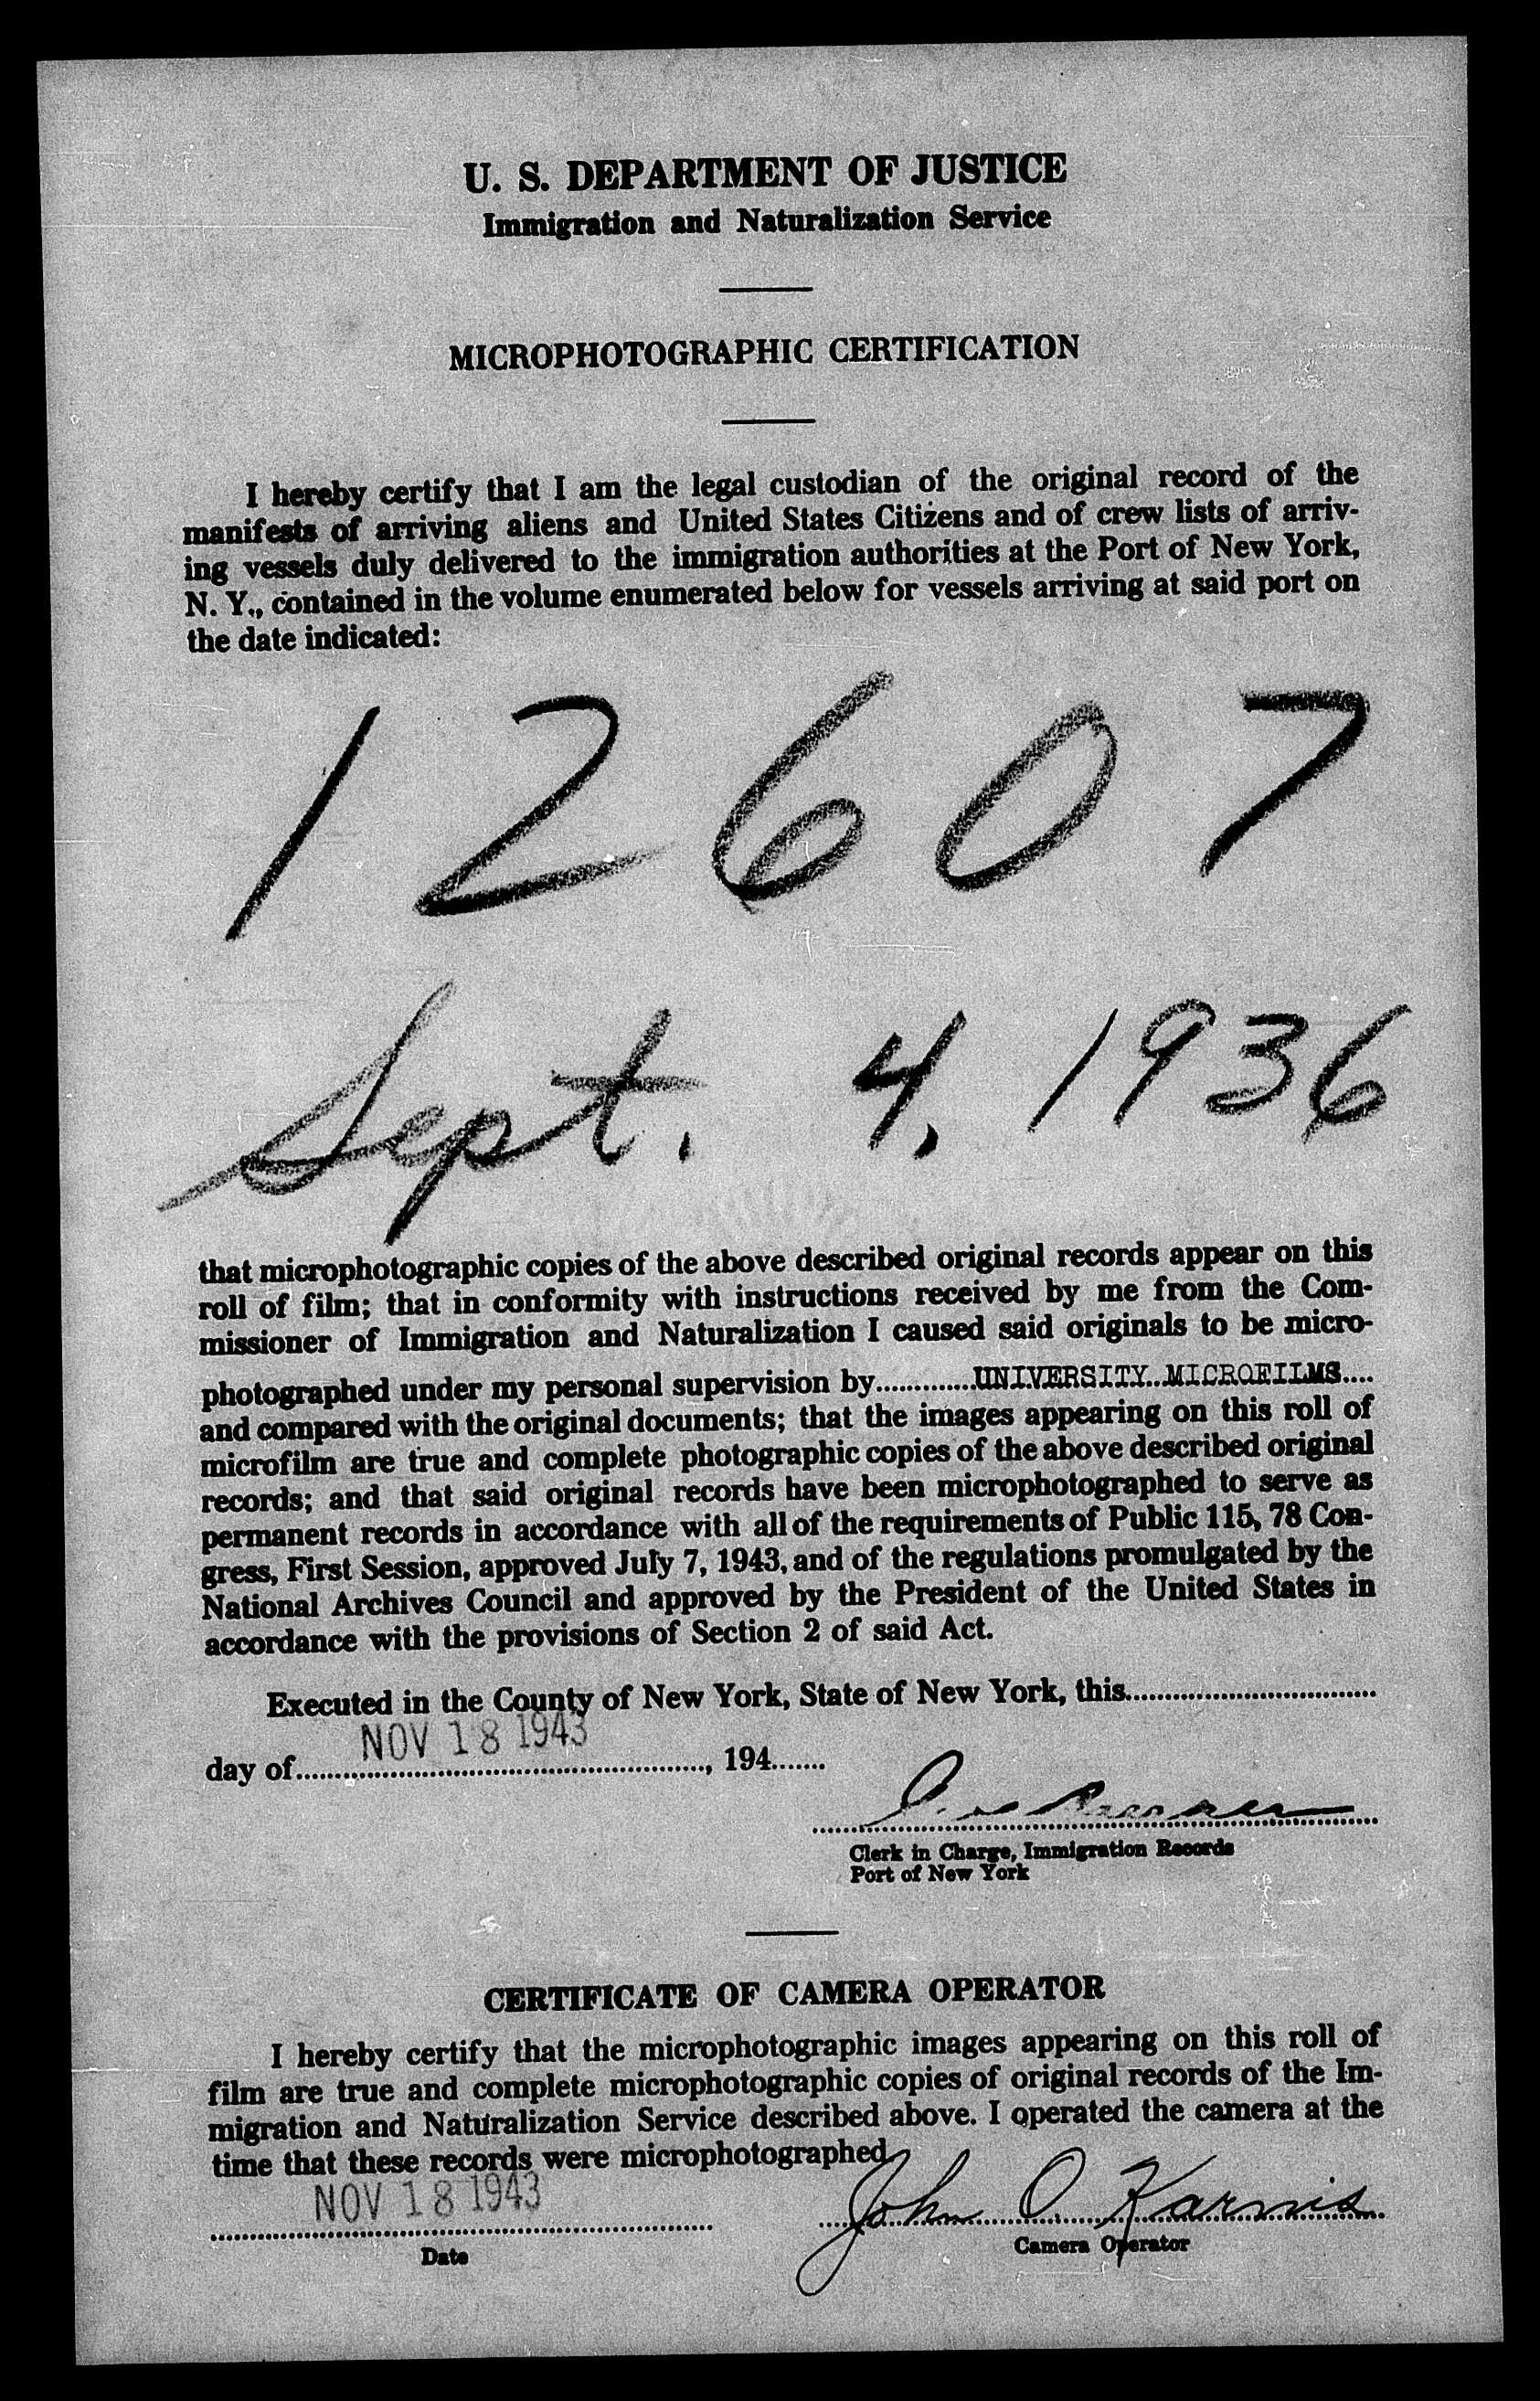 U. S. DEPARTMENT OF JUSTICE
Immigration and Naturalization Service
MICROPHOTOGRAPHIC CERTIFICATION
I hereby certify that I am the legal custodian of the original record of the
manifests of arriving aliens and United States Citizens and of crew lists of arriv-
ing vessels duly delivered to the immigration authorities at the Port of New York,
N. Y., contained in the volume enumerated below for vessels arriving at said port on
the date indicated:
12607
Sept. 4, 1936
that microphotographic copies of the above described original records appear on this
roll of film; that in conformity with instructions received by me from the Com-
missioner of Immigration and Naturalization I caused said originals to be micro-
photographed under my personal supervision by.............UNIVERSITY MICROFILMS....
and compared with the original documents; that the images appearing on this roll of
microfilm are true and complete photographic copies of the above described original
records; and that said original records have been microphotographed to serve as
permanent records in accordance with all of the requirements of Public 115, 78 Con-
gress, First Session, approved July 7, 1943, and of the regulations promulgated by the
National Archives Council and approved by the President of the United States in
accordance with the provisions of Section 2 of said Act.
Executed in the County of New York, State of New York, this................................
NOV 18 1943
day of......................................................, 194.......
Clerk in Charge, Immigration Records
Port of New York
CERTIFICATE OF CAMERA OPERATOR
I hereby certify that the microphotographic images appearing on this roll of
film are true and complete microphotographic copies of original records of the Im-
migration and Naturalization Service described above. I operated the camera at the
time that these records were microphotographed.
NOV 18 1943 John O. Karnis
Date Camera Operator